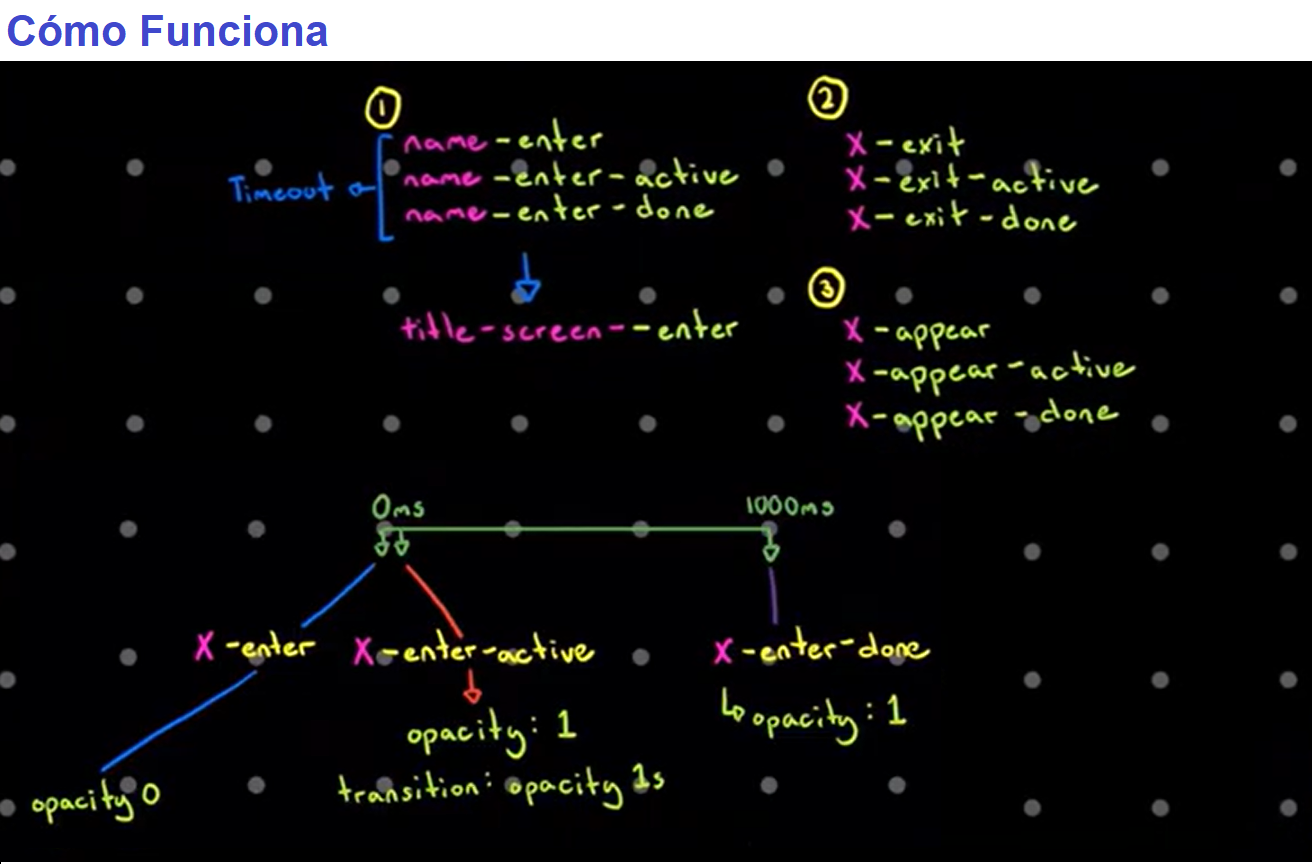 Cómo Funciona
1
name-enter
Timeout
name-enter-active
name-enter-done
title-screen--enter
2
X-exit
X-exit-active
X-exit-done
3
X-appear
X-appear-active
X-appear-done
0ms
1000ms
X-enter
X-enter-active
X-enter-done
opacity 0
opacity: 1
transition: opacity 1s
opacity: 1